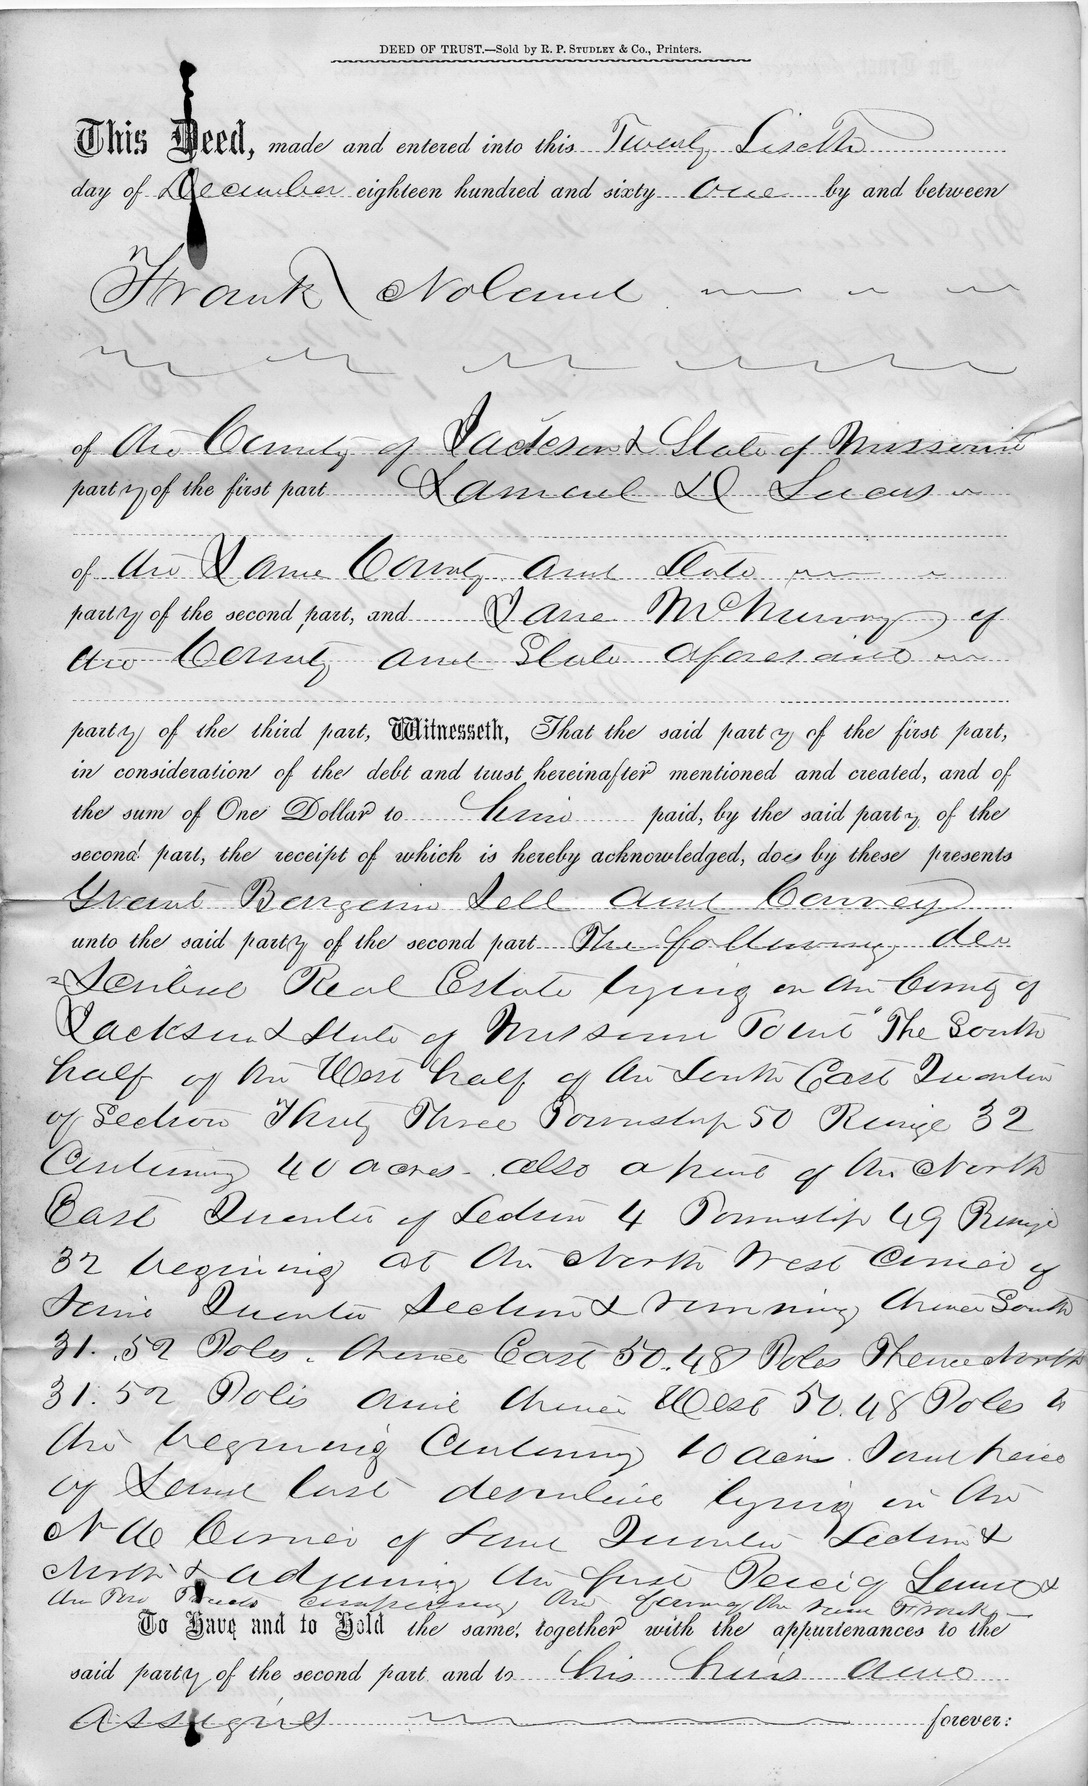 DEED OF TRUST.—Sold by R. P. STUDLEY & Co., Printers.
This Deed, made and entered into this Twenty Sixth
day of December eighteen hundred and sixty one by and between
Frank Noland
of the County of Jackson & State of Missouri
party of the first part Samuel D Lucas
of the Same County and State
party of the second part, and Jane McMurray of
the County and State aforesaid
party of the third part, Witnesseth, That the said party of the first part,
in consideration of the debt and trust hereinafter mentioned and created, and of
the sum of One Dollar to him paid, by the said party of the
second part, the receipt of which is hereby acknowledged, does by these presents
Grant Bargain Sell and Convey
unto the said party of the second part The following de
=scribed Real Estate lying in the County of
Jackson & State of Missouri Towit "The South
half of the West half of the South East Quarter
of Section Thirty Three Township 50 Range 32
Containing 40 acres. also a part of the North
East Quarter of Section 4 Township 49 Range
32 begining at the North West Corner of
Said Quarter Section & running thence South
31.52 Poles. thence East 50.48 Poles Thence North
31.52 Poles and thence West 50.48 Poles to
the begining Containing 10 acres. Said peice
of Land last described lying in the
N W Corner of said Quarter Section &
North & adjoining the first Peice of Land &
the Two Tracts comprising the farm of the said Frank
To Have and to Hold the same, together with the appurtenances to the
said party of the second part and to his heirs and
assigns forever: